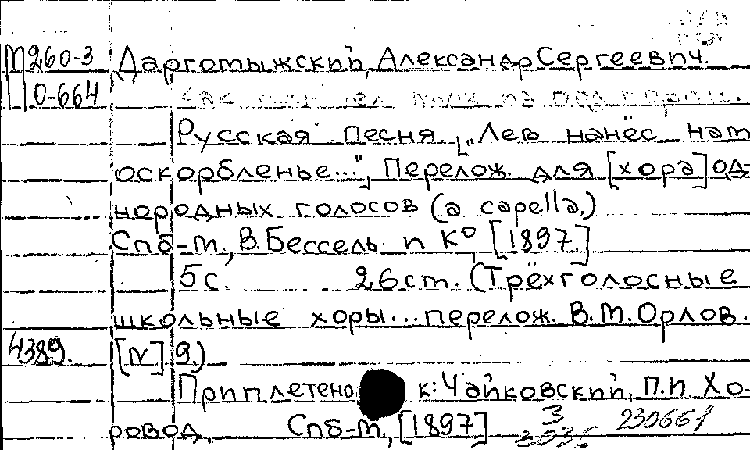 М260-3 Даргомыжский, Александр Сергеевич.
О-664
Русская песня ["Лев нанёс нам
оскорбленье..."], Перелож. для [хора] од-
нородных голосов (a capella.)
Спб-М., В. Бессель и К° [1897.]
5 с. 26 ст. (Трёхголосные
школьные хоры... перелож. В.М. Орлов.
4389. [N] 9.)
Приплетено к: Чайковский, П.И. Хо-
ровод. Спб-М., [1897] 3
230661